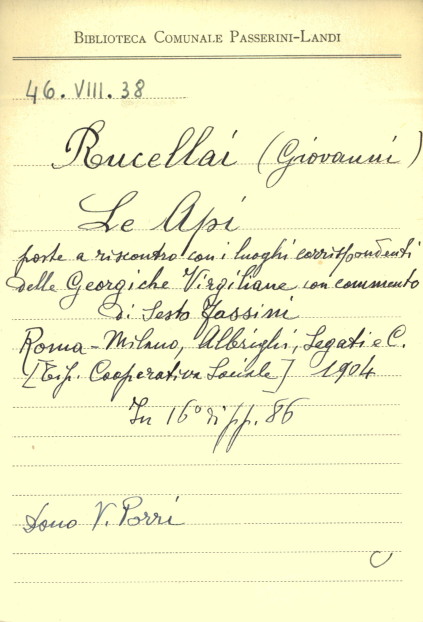 BIBLIOTECA COMUNALE PASSERINI-LANDI
46. VIII. 38
Rucellai (Giovanni)
Le Api
poste a riscontro con i luoghi corrispondenti
delle Georgiche Virgiliane con commento
di Sesto Fassini
Roma-Milano, Albrighi, Segati e C.
[Tip. Cooperativa Sociale] 1904
In 16° di pp. 86
Dono V. Porri
C